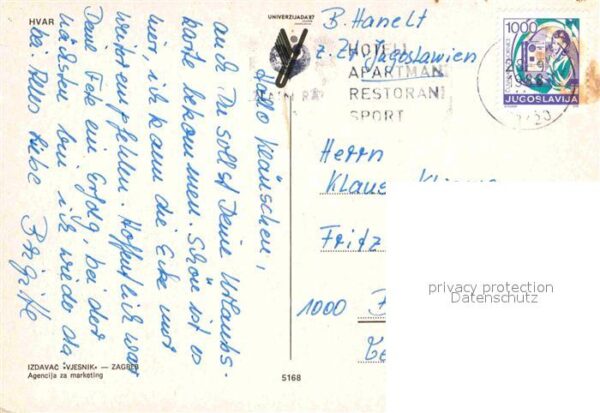 HVAR
UNIVERZIJADA '87
B. Hanelt
z. Zt Jugoslawien
HOTELI
APARTMAN
RESTORANI
SPORT
1000
JUGOSLAVIJA
Hallo Kläuschen,
auch Du sollst Deine Urlaubs-
karte bekommen. Schön ist es
hier, ich kann die Ecke nur
weiterempfehlen. Hoffentlich war
Deine Fete ein Erfolg, bei der
nächsten bin ich wieder da
bei. Alles Liebe Brigitte
Herrn
Klaus
Fritz
1000
privacy protection
Datenschutz
IZDAVAČ »VJESNIK« — ZAGREB
Agencija za marketing
5168